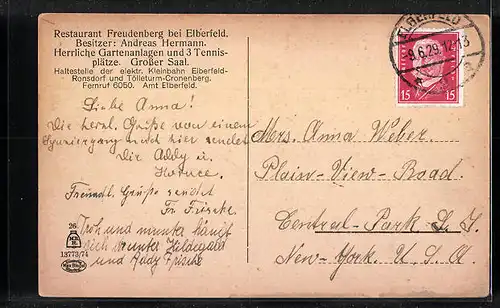 Restaurant Freudenberg bei Elberfeld.
Besitzer: Andreas Hermann.
Herrliche Gartenanlagen und 3 Tennis-
plätze. Großer Saal.
Haltestelle der elektr. Kleinbahn Elberfeld-
Ronsdorf und Tölleturm-Cronenberg.
Fernruf 6050. Amt Elberfeld.
Liebe Anna!
Die herzl. Grüße von einem
Spaziergang nach hier sendet
Dir Addy u.
Freundl. Grüße sendet
Fr. Frische
Froh und munter
sich Hildegard
und Rudy Frische
26
13773/74
ELBERFELD
-9.6.29.
15 15
Mrs. Anna Weber
Plain-View-Road.
Central-Park L. I.
New-York. U. S. A.